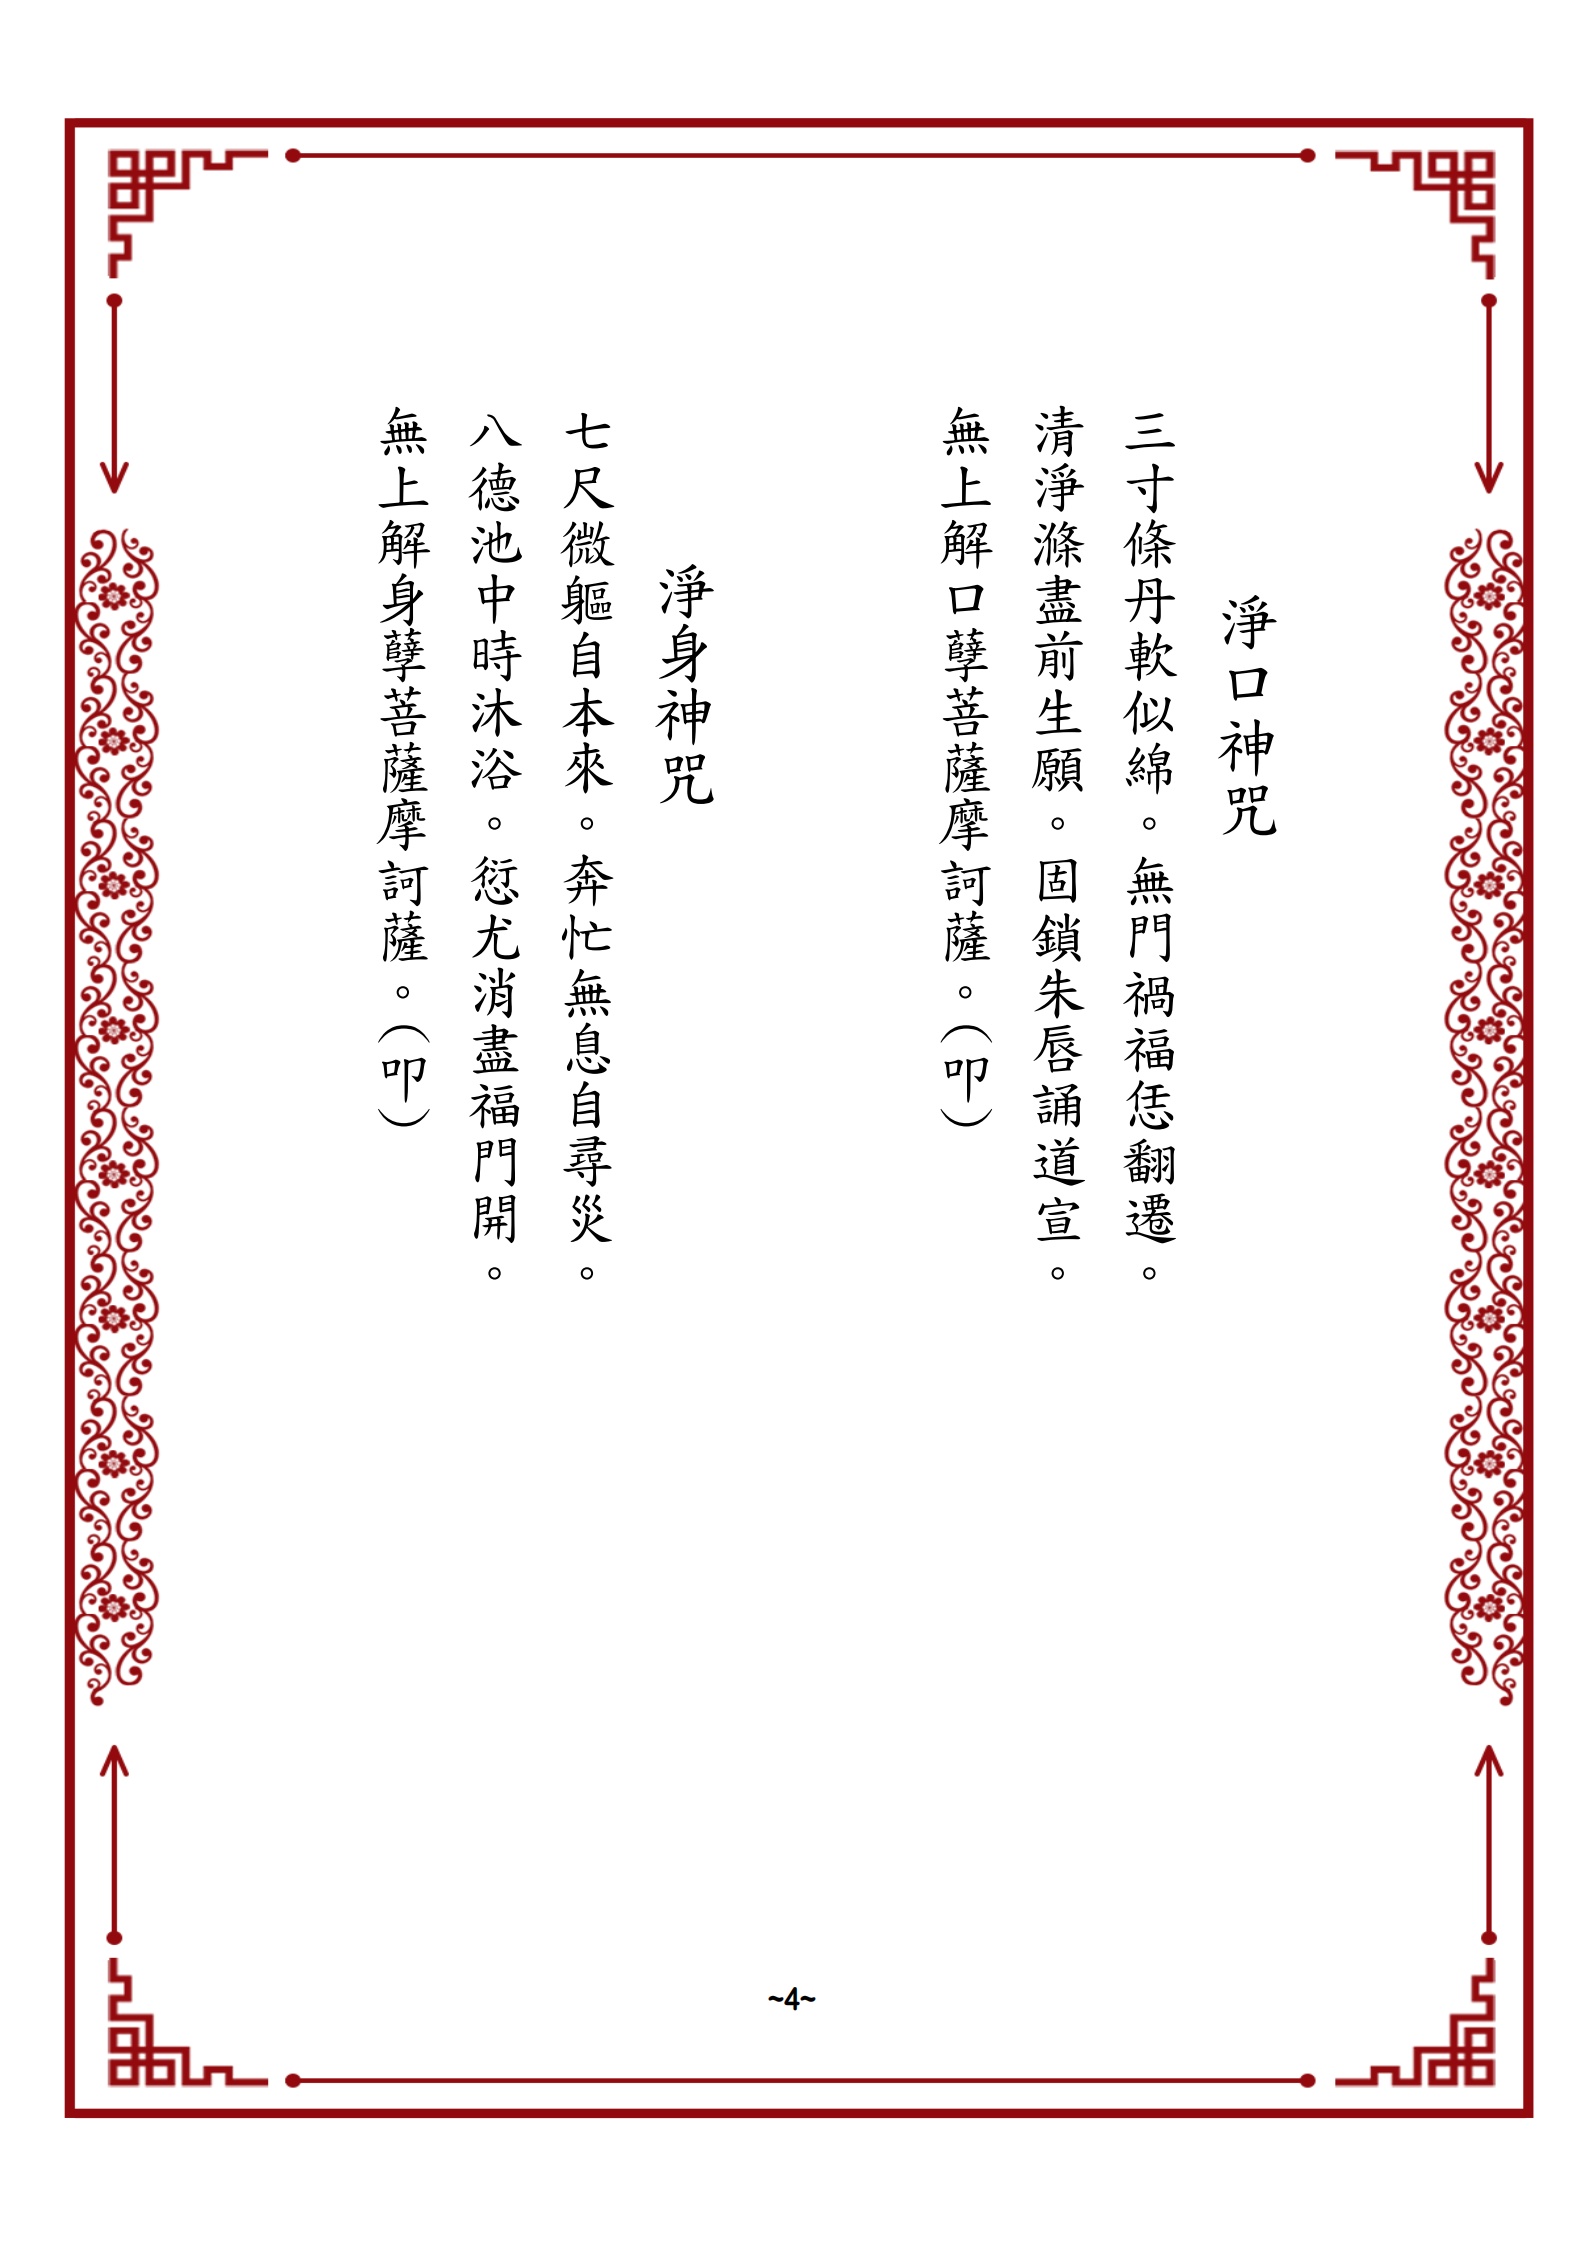 淨口神咒
三寸條丹軟似綿。無門禍福恁翻遷。
清淨滌盡前生願。固鎖朱唇誦道宣。
無上解口孽菩薩摩訶薩。（叩）
淨身神咒
七尺微軀自本來。奔忙無息自尋災。
八德池中時沐浴。愆尤消盡福門開。
無上解身孽菩薩摩訶薩。（叩）
~4~